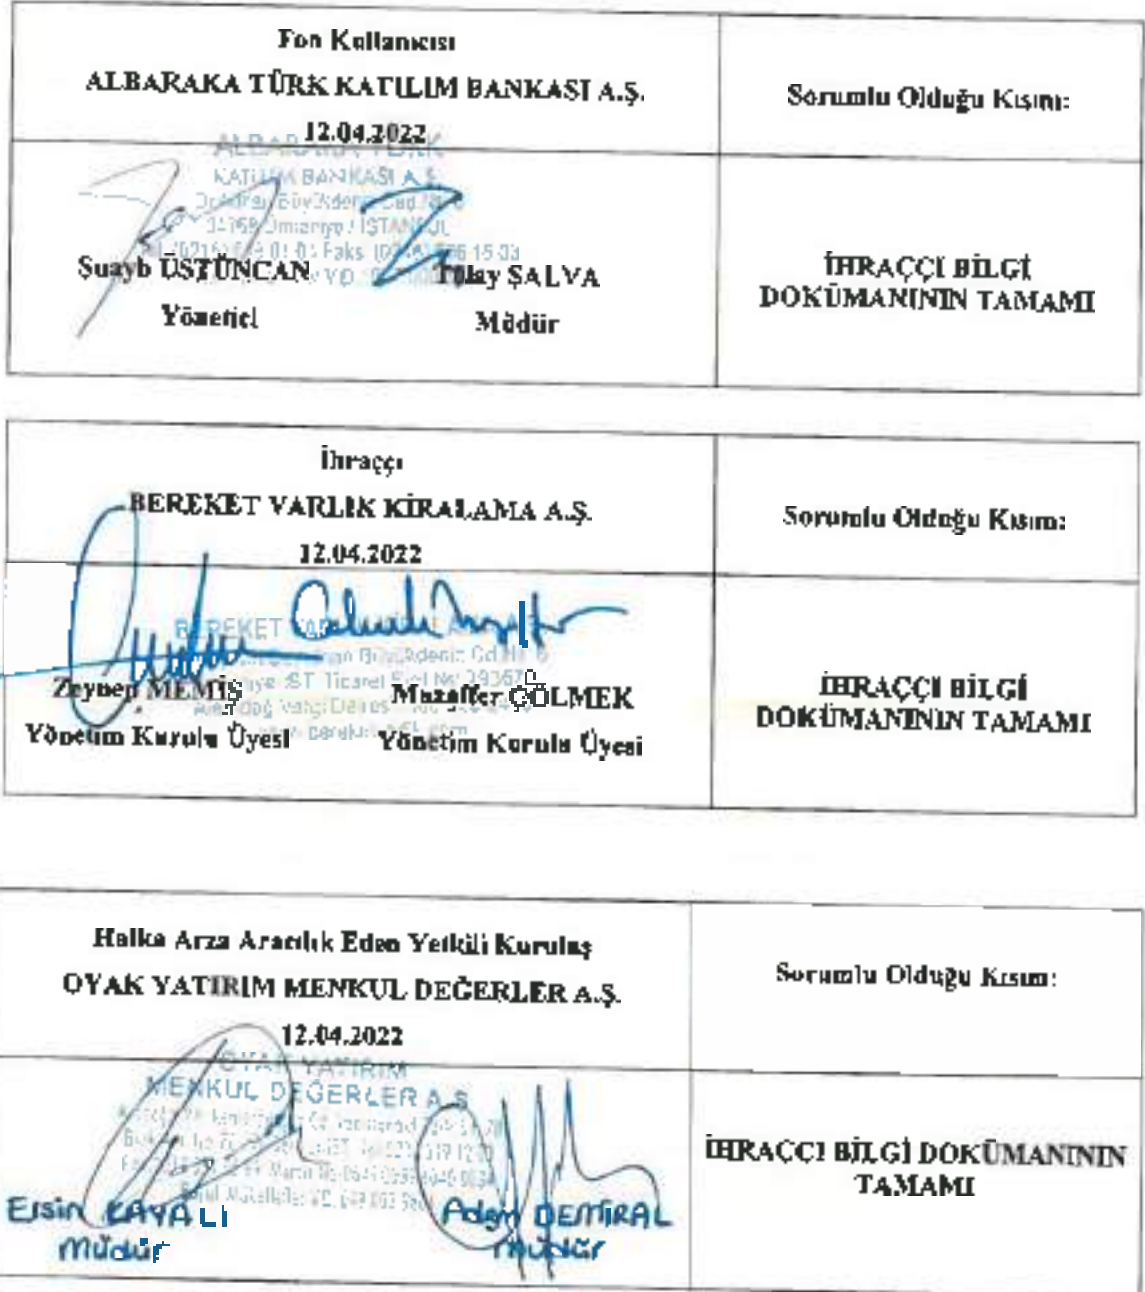 Fon Kullanıcısı
ALBARAKA TÜRK KATILIM BANKASI A.Ş.
12.04.2022
Sorumlu Olduğu Kısım:
ALBARAKA TÜRK
KATILIM BANKASI A.Ş.
Şuayb ÜSTÜNCAN
Yönetici
Tülay SALVA
Müdür
İHRAÇÇI BİLGİ
DOKÜMANININ TAMAMI
İhraççı
BEREKET VARLIK KİRALAMA A.Ş.
12.04.2022
Sorumlu Olduğu Kısım:
BEREKET
Zeynep MEMİŞ
Yönetim Kurulu Üyesi
Muzaffer ÇÖLMEK
Yönetim Kurulu Üyesi
İHRAÇÇI BİLGİ
DOKÜMANININ TAMAMI
Halka Arza Aracılık Eden Yetkili Kuruluş
OYAK YATIRIM MENKUL DEĞERLER A.Ş.
12.04.2022
Sorumlu Olduğu Kısım:
OYAK YATIRIM
MENKUL DEĞERLER A.Ş.
Ersin KAYALI
Müdür
DEMİRAL
Müdür
İHRAÇÇI BİLGİ DOKÜMANININ
TAMAMI